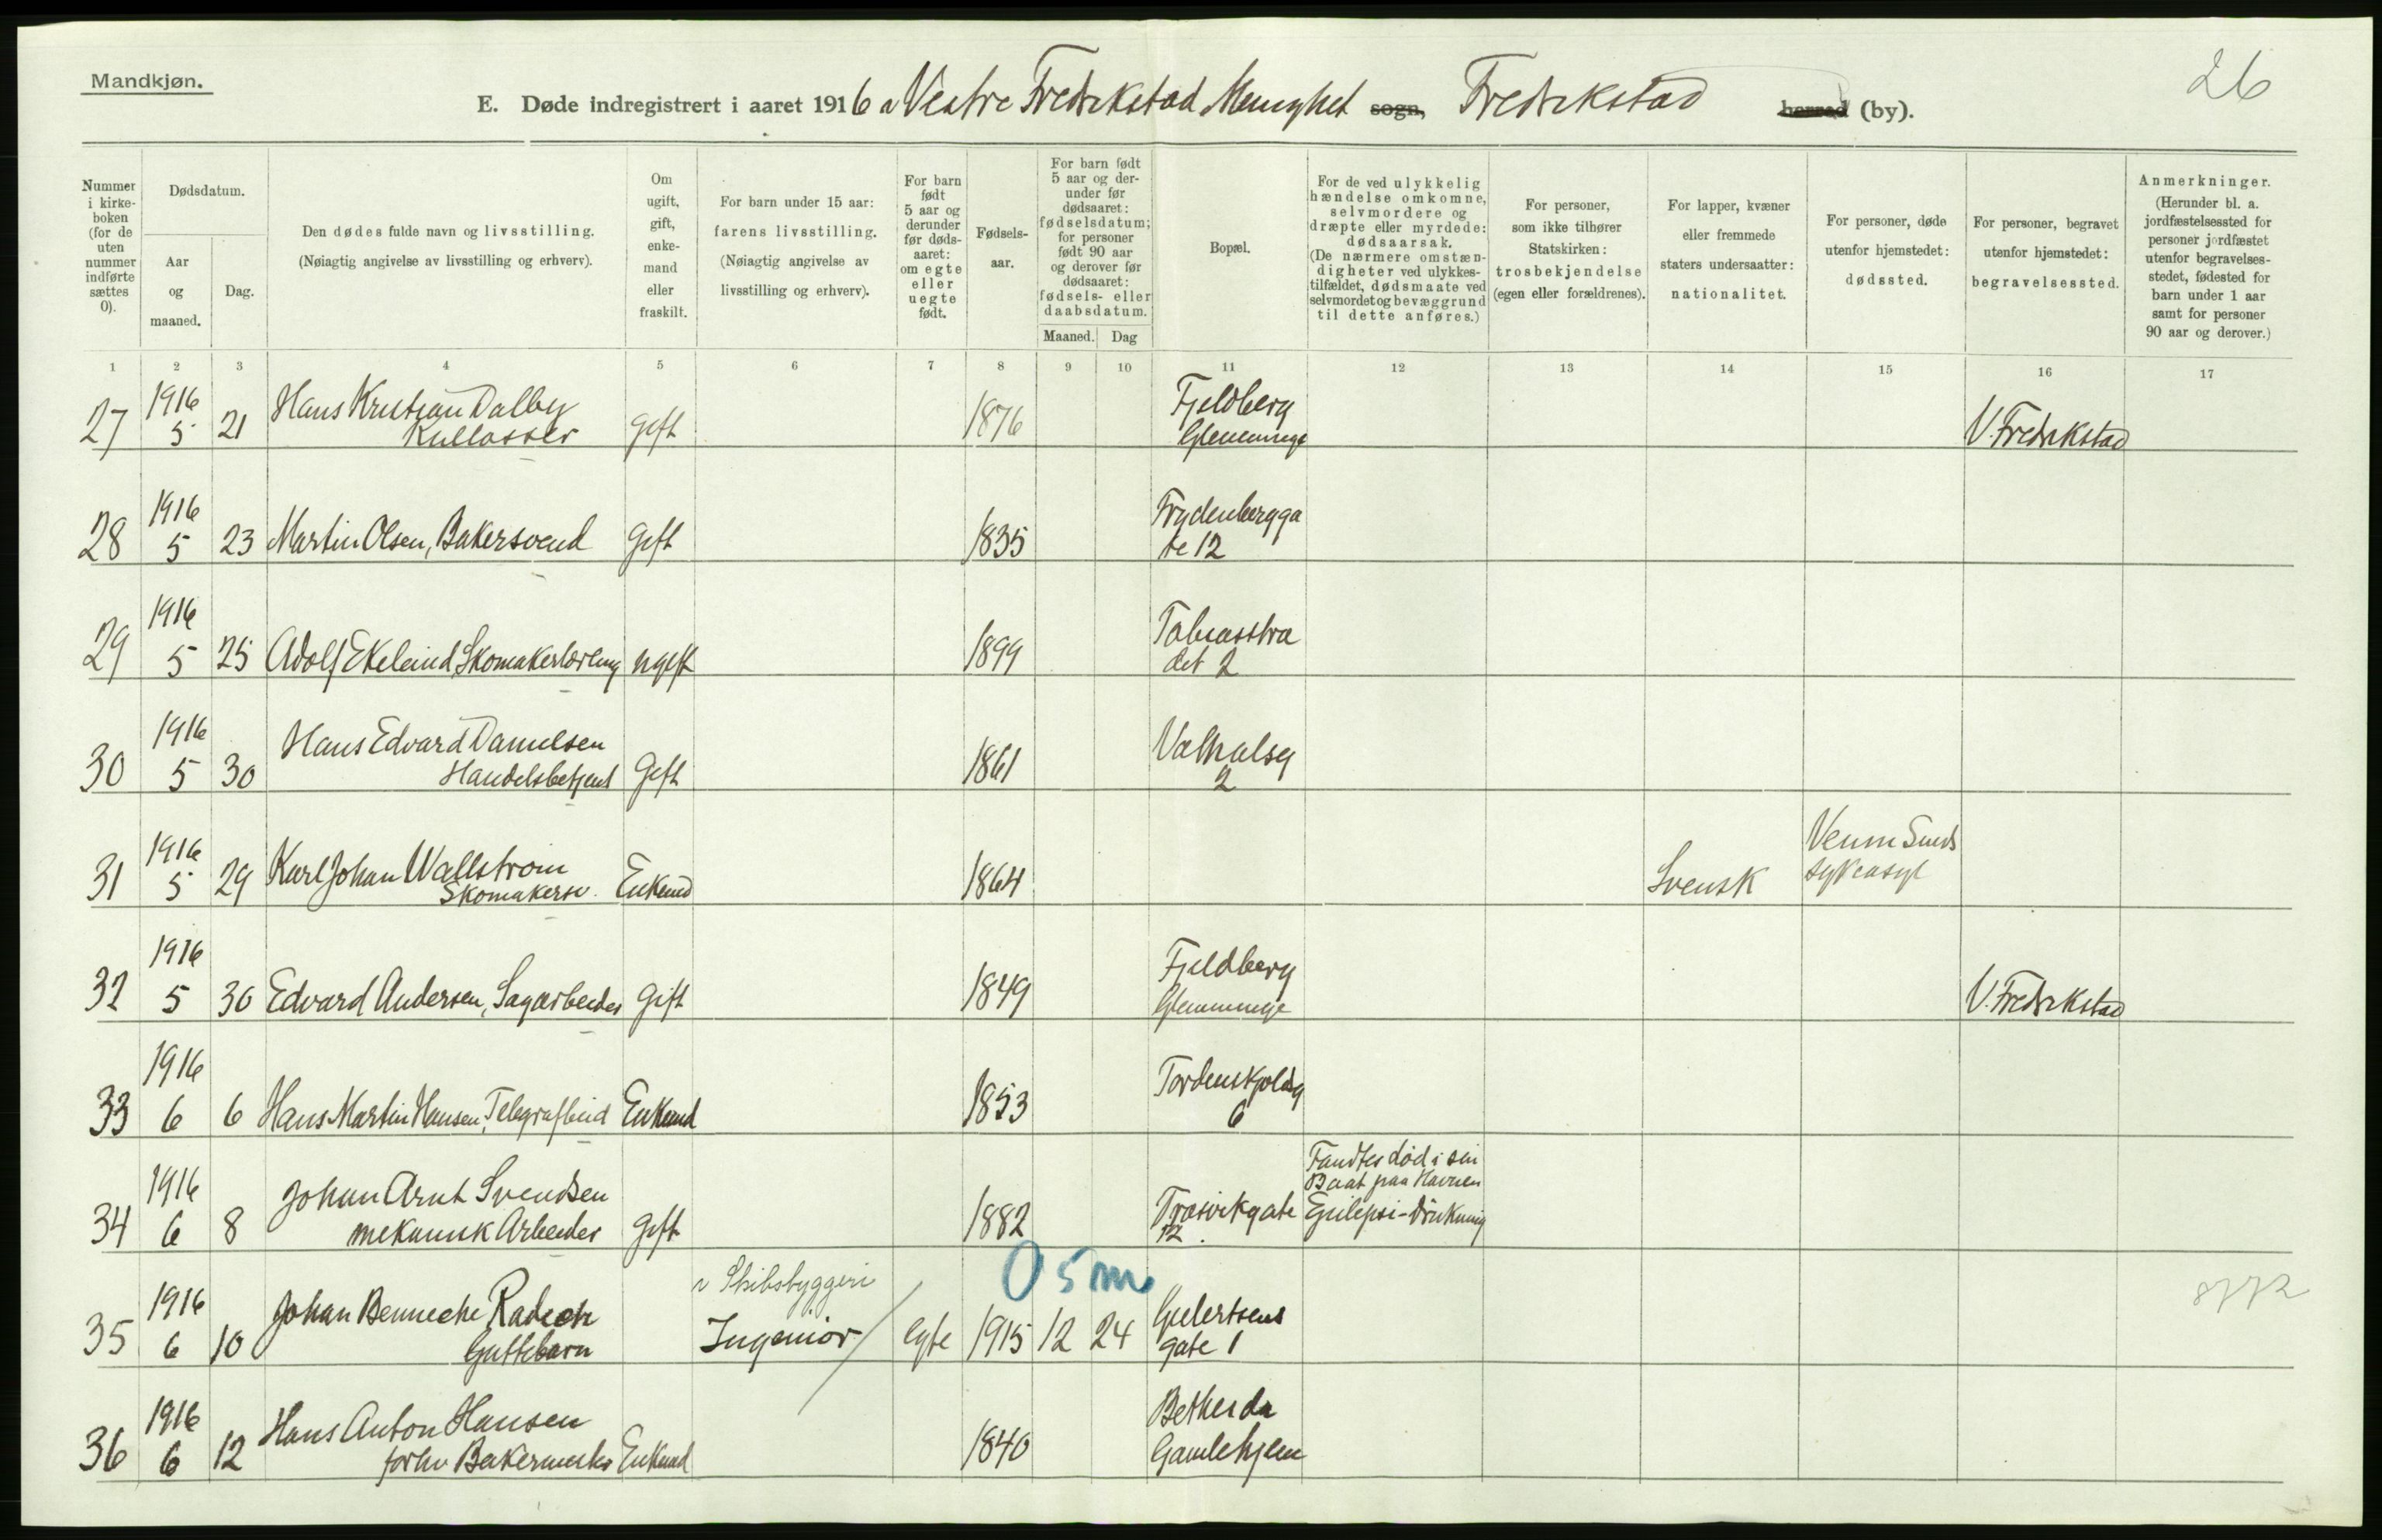 Mandkjøn.
26
E. Døde indregistrert i aaret 1916 i Vestre Fredrikstad Menighet sogn, Fredrikstad herred (by).
Nummer i kirkeboken (for de uten nummer indførte sættes 0).
Dødsdatum.
Aar og maaned.
Dag.
Den dødes fulde navn og livsstilling.
(Nøiagtig angivelse av livsstilling og erhverv).
Om ugift, gift, enkemand eller fraskilt.
For barn under 15 aar: farens livsstilling.
(Nøiagtig angivelse av livsstilling og erhverv).
For barn født 5 aar og derunder før dødsaaret: om egte eller uegte født.
Fødselsaar.
For barn født 5 aar og derunder før dødsaaret: fødselsdatum; for personer født 90 aar og derover før dødsaaret: fødsels- eller daabsdatum.
Maaned. Dag
Bopæl.
For de ved ulykkelig hændelse omkomne, selvmordere og dræpte eller myrdede: dødsaarsak.
(De nærmere omstændigheter ved ulykkestilfældet, dødsmaate ved selvmordet og bevæggrund til dette anføres.)
For personer, som ikke tilhører Statskirken: trosbekjendelse (egen eller forældrenes).
For lapper, kvæner eller fremmede staters undersaatter: nationalitet.
For personer, døde utenfor hjemstedet: dødssted.
For personer, begravet utenfor hjemstedet: begravelsessted.
Anmerkninger.
(Herunder bl. a. jordfæstelsessted for personer jordfæstet utenfor begravelsesstedet, fødested for barn under 1 aar samt for personer 90 aar og derover.)
1 2 3 4 5 6 7 8 9 10 11 12 13 14 15 16 17
27 1916 5 21 Hans Kristian Dalby Kullosser gift 1876 Fjeldberg Glemminge V. Fredrikstad
28 1916 5 23 Martin Olsen, Bakersvend Gift 1835 Frydenbergga te 12
29 1916 5 25 Adolf Ekelund, Skomakerlærling ugift 1899 Tobiasstra det 2
30 1916 5 30 Hans Edvard Danielsen Handelsbetjent Gift 1861 Valhalsg 2
31 1916 5 29 Karl Johan Wallstrøm Skomakersv. Enkemd 1864 Svensk Sykeasyl
32 1916 5 30 Edvard Andersen, Sagarbeider Gift 1849 Fjeldberg Glemminge V. Fredrikstad
33 1916 6 6 Hans Martin Hansen, Enkemd 1853 Tordenskjoldsg 6
34 1916 6 8 Johan Arnt Svendsen mekanisk Arbeider gift 1882 Træsvikgate 12. Fandtes død i sin Baat paa Havnen Epilepsi - Drukning
0 5 m
35 1916 6 10 Johan Bennecke Radich Guttebarn v Skibsbyggeri Ingeniør egte 1915 12 24 Gulertsens gate 1 8772
36 1916 6 12 Hans Anton Hansen forhv Bakermester Enkemd 1840 Bethesda Gamlehjem